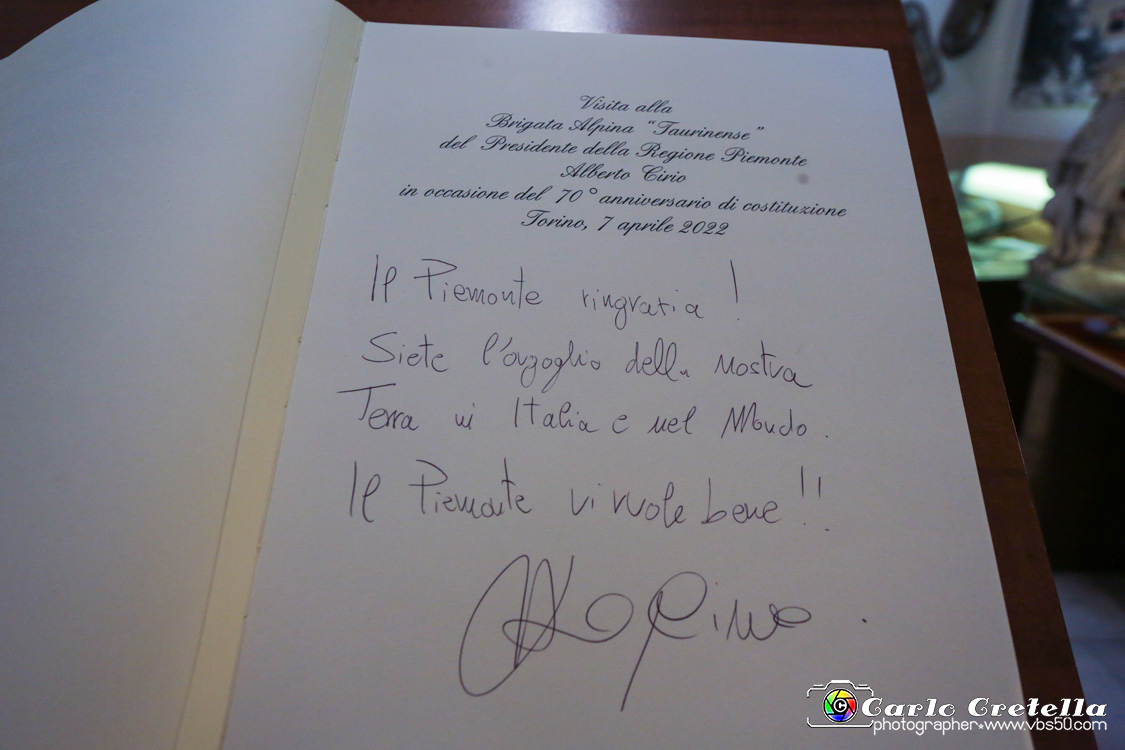 Visita alla
Brigata Alpina "Taurinense"
del Presidente della Regione Piemonte
Alberto Cirio
in occasione del 70° anniversario di costituzione
Torino, 7 aprile 2022
Il Piemonte ringrazia!
Siete l'orgoglio della nostra
Terra in Italia e nel Mondo.
Il Piemonte vi vuole bene!!
Carlo Cretella
photographer•www.vbs50.com